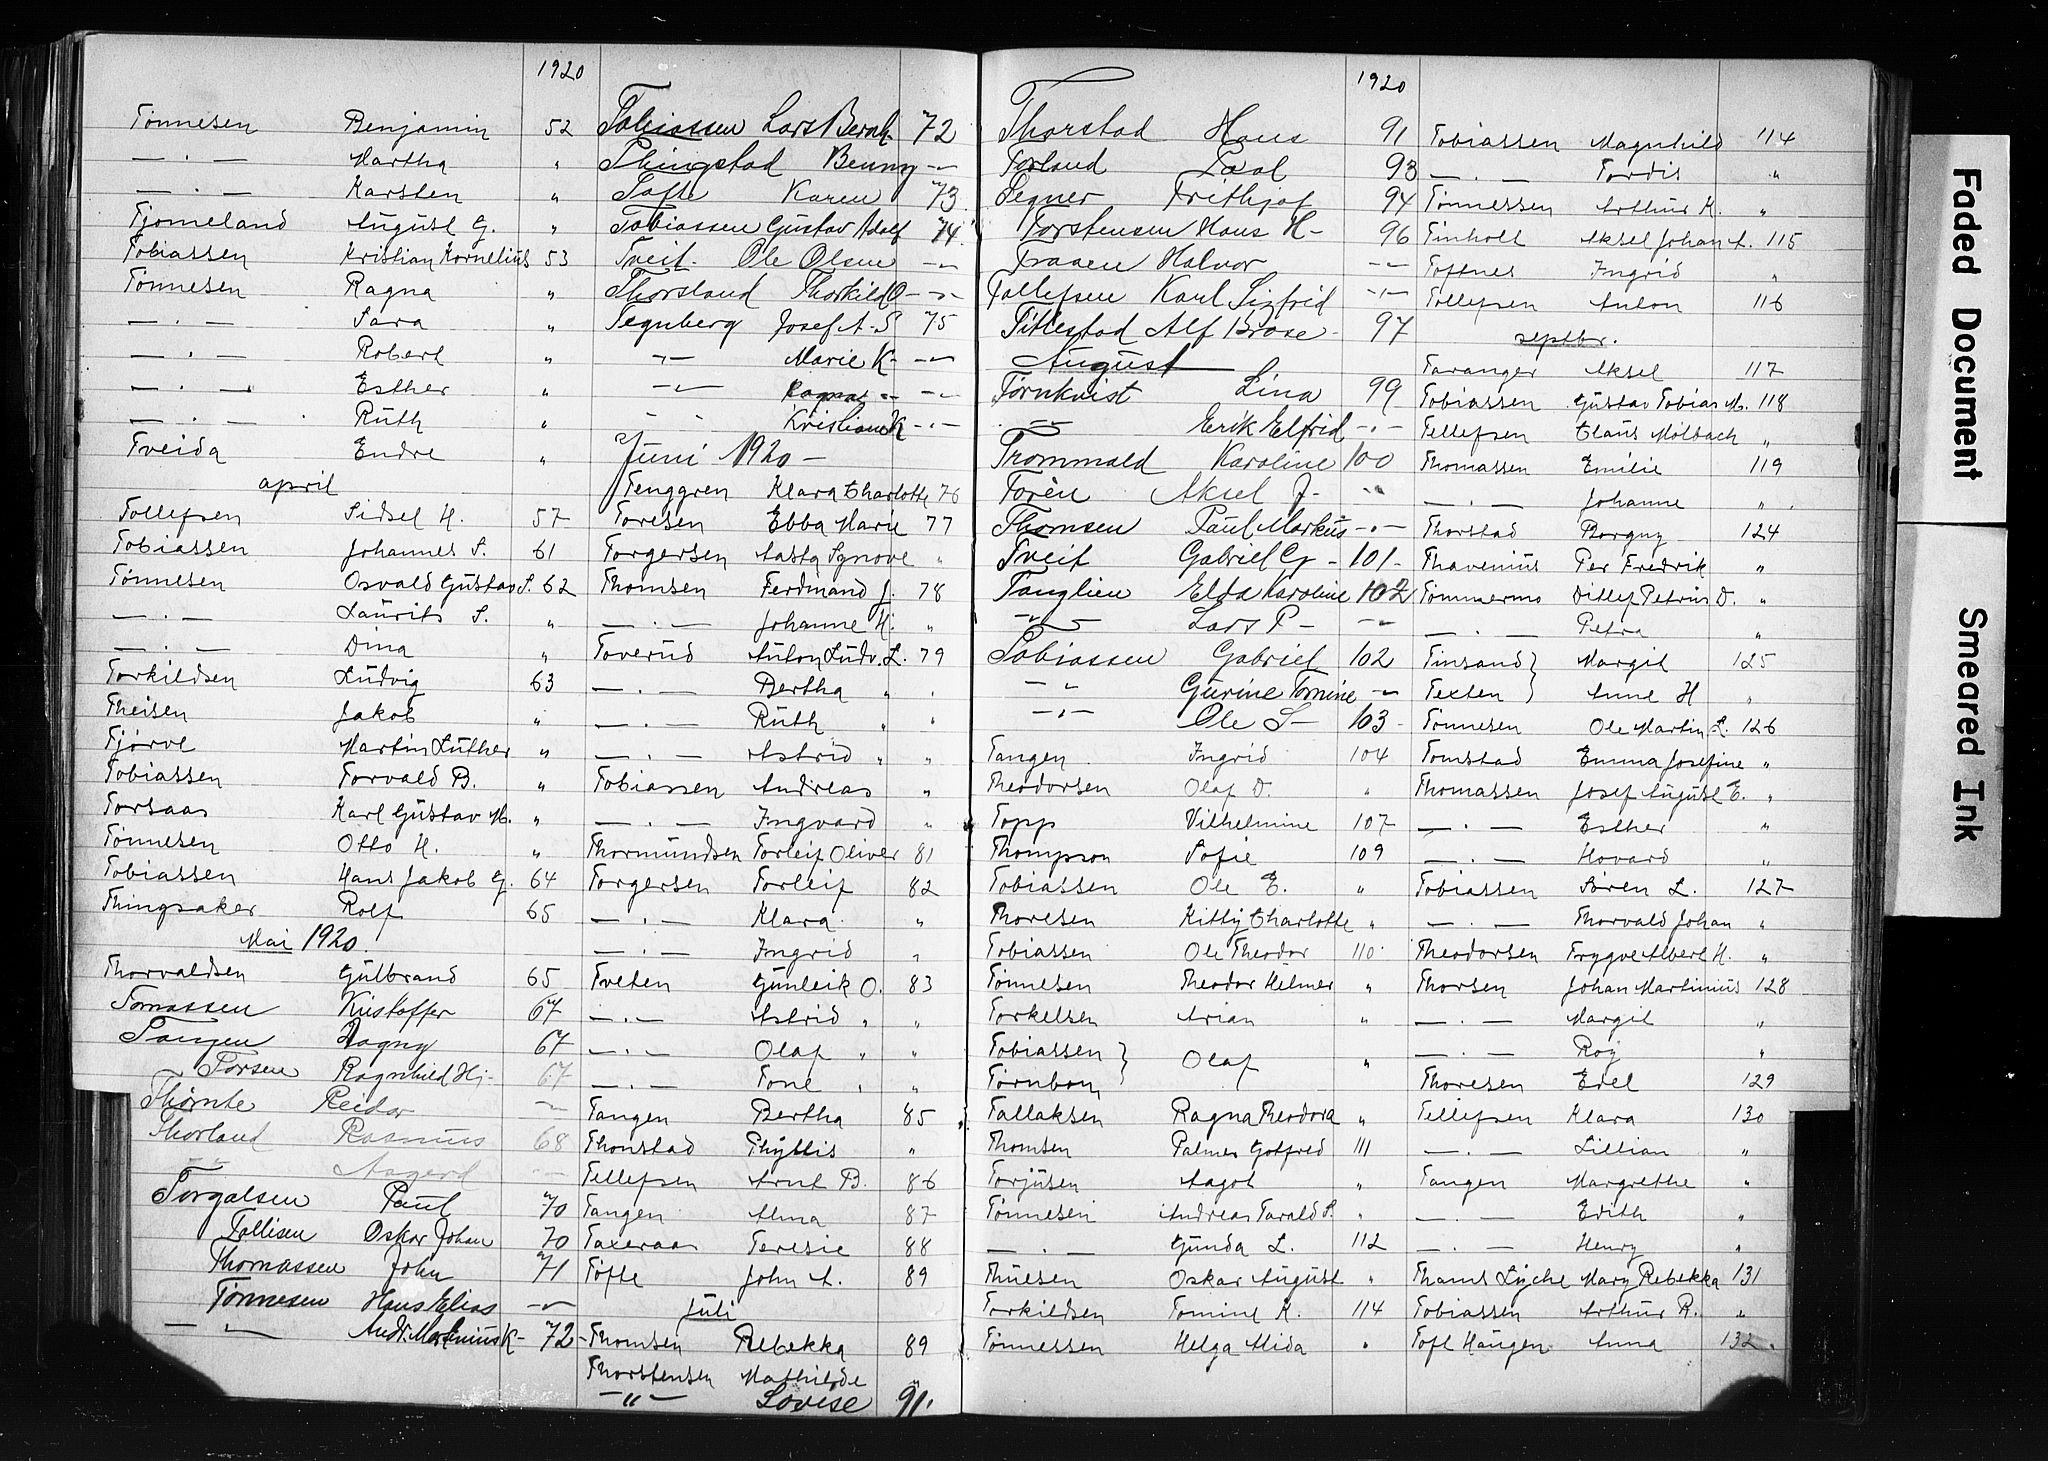 1920
Tønnesen Benjamin 52
— . — Martha "
— . — Karsten "
Tjomeland August G. "
Tobiassen Kristian Kornelius 53
Tønnesen Ragna "
— . — Sara "
— . — Robert "
— . — Esther "
— . — Ruth "
Tveida Endre "
april
Tollefsen Sidsel H. 57
Tobiassen Johannes S. 61
Tønnesen Osvald Gustav S. 62
— . — Laurits S. "
— . — Dina "
Torkildsen Ludvig 63
Theisen Jakob "
Tjørve Martin Luther "
Tobiassen Torvald B. "
Torsaas Karl Gustav M. "
Tønnesen Otto H. "
Tobiassen Hans Jakob G. 64
Thingsaker Rolf 65
Mai 1920
Thorvaldsen Gulbrand 65
Tomassen Kristoffer 67
Tangen Dagny 67
Torsen Ragnhild Hj- 67
Thørnte Reidar —
Thorland Rasmus 68
Aagerd —
Torgalsen Paul 70
Tallisen Oskar Johan 70
Thomassen John 71
Tønnesen Hans Elias —"—
— " — Andr. Martinius K- 72
Tobiassen Lars Bernh. 72
Thingstad Benny —"—
Tofte Karen 73
Tobiassen Gustav Adolf 74
Tveit. Ole Olsen —"—
Thorsland Thorkild O- —"—
Tegnberg Josef A. S 75
—"— Marie K- —"—
—"— Ragna —"—
—"— Kristiane K —"—
Juni 1920 —
Tenggren Klara Charlotte 76
Toresen Ebba Marie 77
Torgersen Aasta Synove "
Thomsen Ferdinand J. 78
— . — Johanne H. "
Toverud Anton Ludv. L. 79
— . — Bertha " "
— . — Ruth " "
— . — Astrid " "
Tobiassen Andreas "
— . — Ingvard "
Thormundsen Torleif Oliver 81
Torgersen Torleif 82
— . — Klara "
— . — Ingrid "
Tveten Gunleik O. 83
— . — Astrid " "
— . — Olaf " "
— . — Tone " "
Tangen Bertha 85
Thonstad Phyllis "
Tellefsen Arnt B. 86
Tangen Alma 87
Taxeraas Teresie 88
Tofte John A. 89
Juli
Thomsen Rebekka 89
Thorstensen Mathilde "
— " — Lovise 91.
1920
Thorstad Hans 91
Torland Taal 93
Tegner Frithjof 94
Torstensen Hans H- 96
Traaen Halvor —"—
Tollefsen Karl Sigfrid —"—
Tittestad Alf Brose - 97
August
Törnkvist Lina 99
—"— Erik Elfrid —"—
Trommald Karoline 100
Torèn Aksel J- —"—
Thomsen Paul Markus —"—
Tveit Gabriel G - 101 -
Tanglien Elda Karoline 102
—"— Lars P- —"—
Tobiassen Gabriel 102
—"— Gurine Tomine —"—
—"— Ole S- 103 -
Tangen Ingrid 104
Theodorsen Olaf D. "
Topp Vilhelmine 107
Thompson Sofie 109
Tobiassen Ole E. "
Thoresen Kitty Charlotte "
Tobiassen Ole Theodor 110
Tønnesen Theodor Helmer "
Torkelsen Arian "
Tobiassen }
Tørnbon } Olaf "
Tallaksen Ragna Theodora "
Thomsen Palmer Gotfred 111
Torjusen Aagot "
Tønnesen Andreas Tarald S. "
— . — Gunda L. 112
Thuesen Oskar August "
Torkildsen Tomine K. 114
Tønnessen Helga Alida "
Tobiassen Magnhild 114
— . — Tordis "
Tønnessen Arthur K. "
Tinholt Aksel Johan A. 115
Toftnes Ingrid "
Tollefsen Anton 116
septbr.
Taranger Aksel 117
Tobiassen Gustav Tobias M. 118
Tellefsen Claus Mölbach "
Thomassen Emilie 119
— . — Johanne "
Thorstad Borgny 124
Thavenius Per Fredrik "
Tømmermo Ditlef Petrus D. "
— . — Petra "
Tinsand } Margit 125
Texten } Anne H "
Tønnesen Ole Martin L. 126
Tomstad Emma Josefine "
Thomassen Josef August E. "
— . — Esther "
— . — Hovard "
Tobiassen Søren L. 127
— . — Thorvald Johan "
Theodorsen Trygve Albert H. "
Thorsen Johan Martinius 128
— . — Margit "
— . — Roy "
Thoresen Edel 129
Tellefsen Klara 130
— . — Lillian "
Tangen Margrethe "
— . — Edith "
— . — Henry "
Thams Lyche Mary Rebekka 131
Tobiassen Arthur R. "
Toft Haugen Anna 132.
Faded Document
Smeared Ink